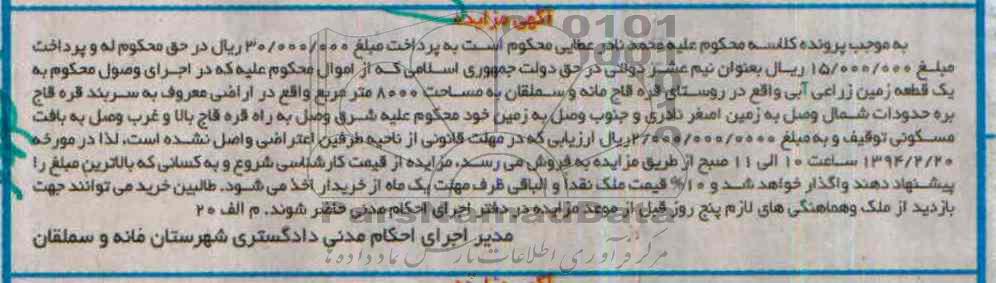 آگهی مزایده
به موجب پرونده کلاسه محکوم علیه محمد نادر عطایی محکوم است به پرداخت مبلغ ۳۰/۰۰۰/۰۰۰ ریال در حق محکوم له و پرداخت
مبلغ ۱۵/۰۰۰/۰۰۰ ریال بعنوان نیم عشر دولتی در حق دولت جمهوری اسلامی که از اموال محکوم علیه که در اجرای وصول محکوم به
یک قطعه زمین زراعی آبی واقع در روستای قره قاج مانه و سملقان به مساحت ۸۰۰۰ متر مربع واقع در اراضی معروف به سربند قره قاج
بره حدودات شمال وصل به زمین اصغر نادری و جنوب وصل به زمین خود محکوم علیه شرق وصل به راه قره قاج بالا و غرب وصل به بافت
مسکونی توقیف و به مبلغ ۲/۰۰۰/۰۰۰/۰۰۰ ریال ارزیابی که در مهلت قانونی از ناحیه طرفین اعتراضی واصل نشده است، لذا در مورخه
۱۳۹۴/۲/۲۰ ساعت ۱۰ الی ۱۱ صبح از طریق مزایده به فروش می رسد، مزایده از قیمت کارشناسی شروع و به کسانی که بالاترین مبلغ را
پیشنهاد دهند واگذار خواهد شد و ۱۰% قیمت ملک نقدا و الباقی ظرف مهلت یک ماه از خریدار اخذ می شود. طالبین خرید می توانند جهت
بازدید از ملک وهماهنگی های لازم پنج روز قبل از موعد مزایده در دفتر اجرای احکام مدنی حاضر شوند. م الف ۲۰
مدیر اجرای احکام مدنی دادگستری شهرستان مانه و سملقان
مرکز فرآوری اطلاعات پارس نماد داده ها